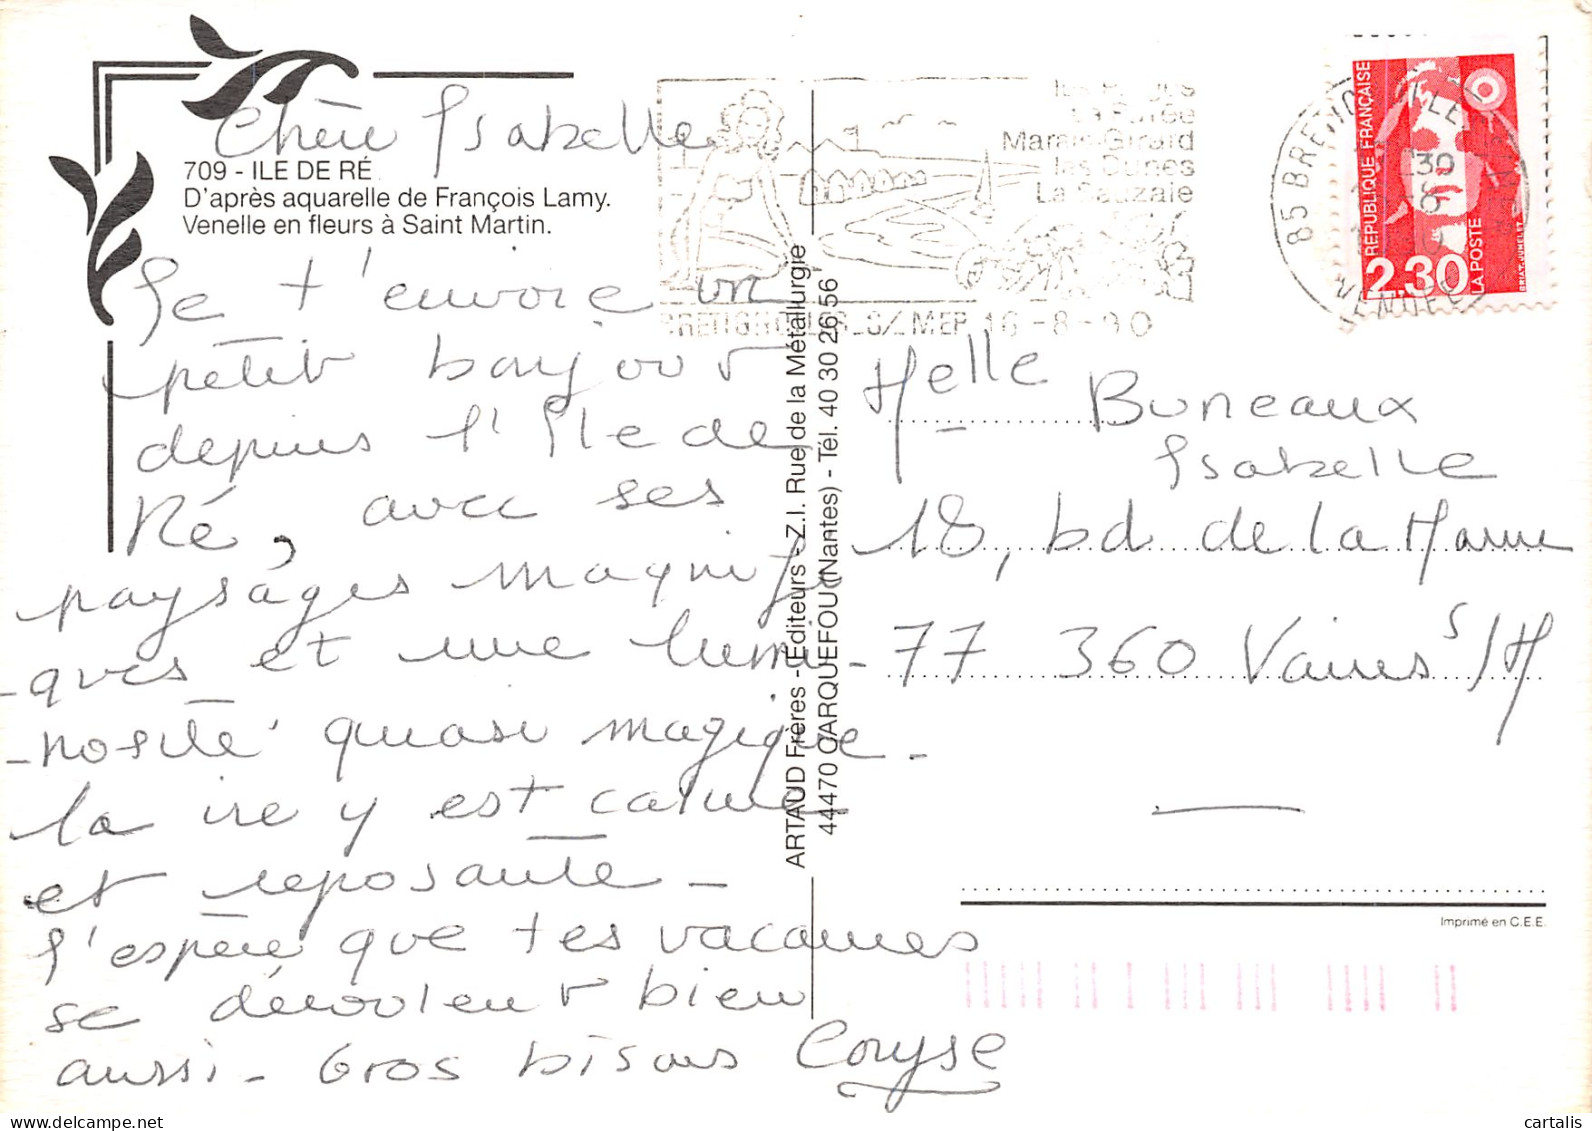 709 - ILE DE RÉ
D'après aquarelle de François Lamy.
Venelle en fleurs à Saint Martin.
Chère Isabelle
Je t'envoie un
petit bonjour
depuis l'Ile de
Ré, avec ses
paysages magnifi
-ques et une lumi-
-nosité quasi magique.
la vie y est calme
et reposante -
J'espère que tes vacances
se déroulent bien
aussi - Gros bisous
ARTAUD Frères - Éditeurs - Z.I. Rue de la Métallurgie
44470 CARQUEFOU (Nantes) - Tél. 40 30 26 56
La Parée
Marais Girard
les Dunes
La Sauzaie
BRETIGNOLLES S/ MER 16-8-90
85 BRETIGNOLLES
VENDEE
RÉPUBLIQUE FRANÇAISE
2,30
LA POSTE
BRIAT. JUMELET
Melle Buneaux
Isabelle
18, bd de la Marne
77 360 Vaires S/M
Imprimé en C.E.E.
cartalis
www.delcampe.net